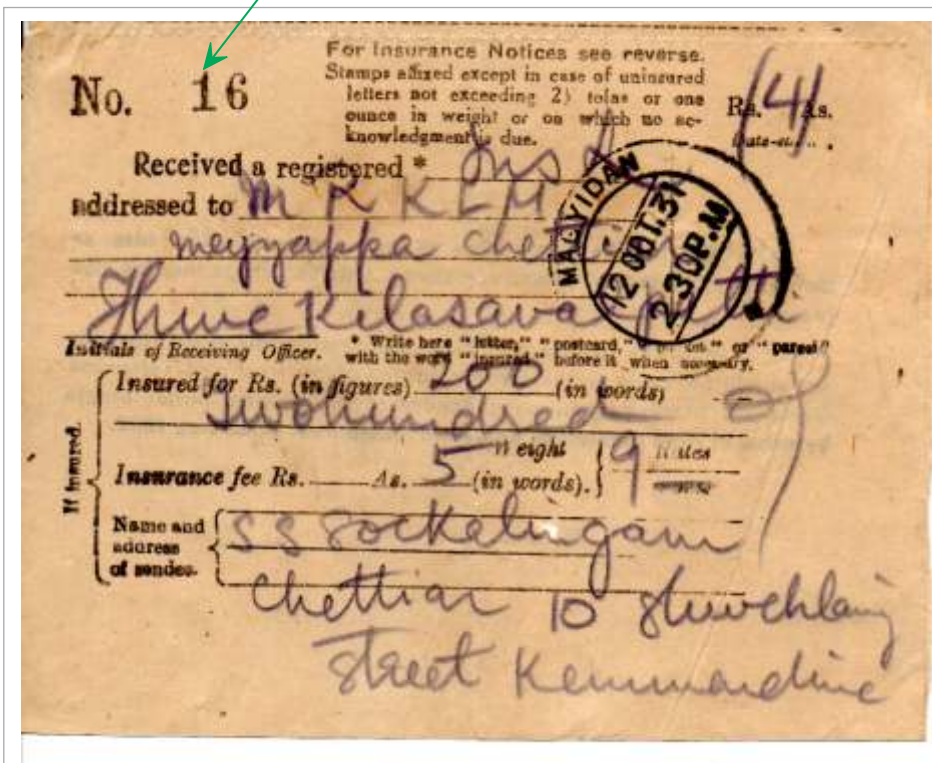 For Insurance Notices see reverse.
No. 16
Stamps affixed except in case of uninsured
letters not exceeding 2½ tolas or one
ounce in weight or on which no ac-
knowledgment is due.
Rs. /4/ As.
Date-stamp.
Received a registered * Ins L
addressed to M R K L M
meyyappa chettiar
MALYIDAW
12 OCT.31
2-30P.M
Initials of Receiving Officer.
* Write here "letter," "postcard," "packet" or "parcel"
with the word "insured" before it when necessary.
If insured.
Insured for Rs. (in figures) 200 (in words)
Twohundred
Insurance fee Rs. As. 5 (in words).
Weight 9
Name and
address
of sender.
S S Sockalingam
Chettiar 10
Street Kemmandine